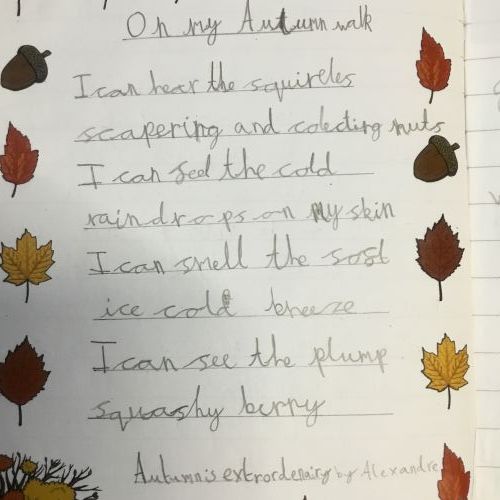 On my Autumn walk
I can hear the squireles
scapering and colecting nuts
I can feel the cold
raindrops on My skin
I can smell the soft
ice cold breeze
I can see the plump
squashy berry
Autumn is extrordenairy by Alexandre